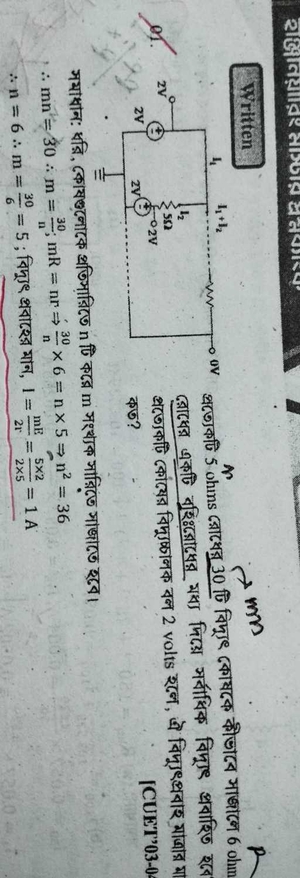 Written
01.
প্রত্যেকটি 5 ohms রোধের 30 টি বিদ্যুৎ কোষকে কীভাবে সাজালে 6 ohm
রোধের একটি বহিঃরোধের মধ্য দিয়ে সর্বাধিক বিদ্যুৎ প্রবাহিত হবে
প্রত্যেকটি কোষের বিদ্যুচ্চালক বল 2 volts হলে, ঐ বিদ্যুৎপ্রবাহ মাত্রার
কত?
[CUET'03-0
mn
I₁
I₁ + I₂
0V
2V
2V
I₂
5Ω
2V
2V
সমাধান: ধরি, কোষগুলোকে প্রতিসারিতে n টি করে m সংখ্যক সারিতে সাজাতে হবে।
∴ mn = 30 ∴ m = 30/n ; mR = nr ⇒ 30/n × 6 = n × 5 ⇒ n² = 36
∴ n = 6 ∴ m = 30/6 = 5 ; বিদ্যুৎ প্রবাহের মান, I = mE/2r = 5×2/2×5 = 1 A